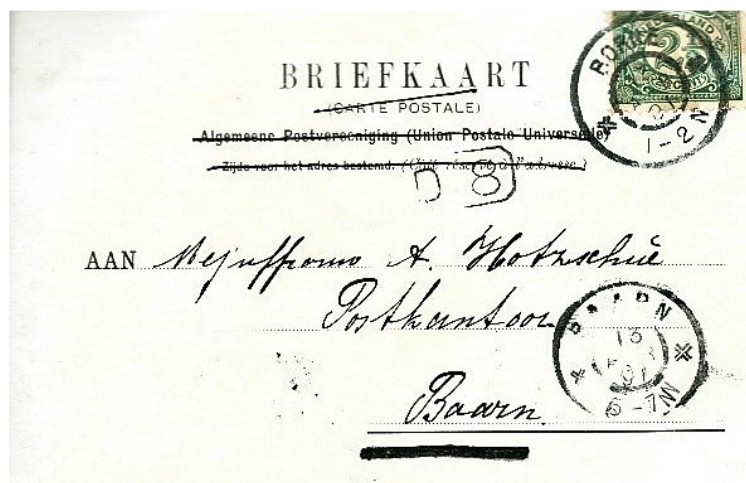 NEDERLAND
2½
CENT
BORNE
1-2 N
BRIEFKAART
(CARTE POSTALE)
Algemeene Postvereeniging (Union Postale Universelle)
Zijde voor het adres bestemd. (Côté réservé à l'adresse.)
D 8
AAN Mejuffrouw A. Hotzschué
Postkantoor
BAARN
13
01
6-7N
Baarn.